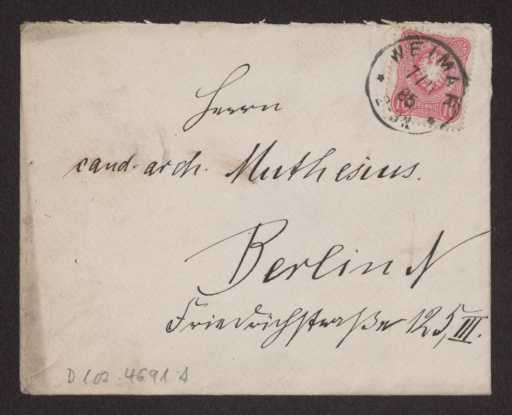 WEIMAR
85
Herrn
cand. arch. Muthesius.
Berlin N
Friedrichstraße 125, III.
D 102-4691 A